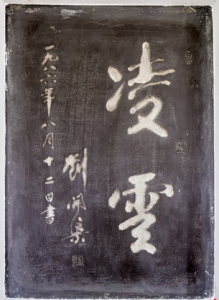 凌雲
劉開渠
一九八六年八月十二日書